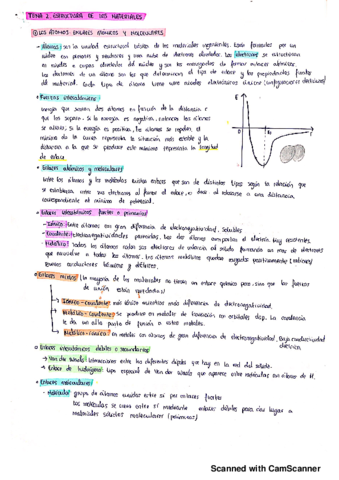 TEMA 2. ESTRUCTURA DE LOS MATERIALES
① LOS ÁTOMOS. ENLACES ATÓMICOS Y MOLECULARES
- Átomos: son la unidad estructural básica de los materiales ingenieriles. Están formados por un
núcleo con protones y neutrones y una nube de electrones alrededor. Los electrones se estructuran
en niveles o capas alrededor del núcleo y son los encargados de formar enlaces atómicos.
Los electrones de un átomo son los que determinan el tipo de enlace y las propiedades
del material. Cada tipo de átomo tiene unos niveles electrónicos
• Fuerzas interatómicas
Energía que poseen dos átomos en función de la distancia
que los separa. Si la energía es negativa, entonces los átomos
se atraen; Si la energía es positiva, los átomos se repelen. El
mínimo de la curva representa la situación más estable y la
distancia a la que se produce este mínimo representa la longitud
de enlace
E
• Enlaces atómicos y moleculares
Entre los átomos y las moléculas existen enlaces que son de distintos tipos según la relación que
se establezca entre sus electrones al formar el enlace, es decir al situarse a una distancia
correspondiente al mínimo de potencial.
• Enlaces interatómicos fuertes o primarios
- Iónico: Entre átomos con gran diferencia de electronegatividad. Solubles
- Covalente: Electronegatividades parecidas. Los dos átomos comparten el electrón. Muy resistentes.
- Metálico: Todos los átomos ceden sus electrones de valencia al metal formando un mar de electrones
que envuelve a todos los átomos. Los átomos metálicos quedan cargados positivamente (cationes)
Buenos conductores térmicos y eléctricos.
• Enlaces mixtos: La mayoría de los materiales no tienen un enlace químico puro sino que las fuerzas
de unión están
Iónico - covalente: más iónico mientras más diferencia de electronegatividad.
Metálico - covalente: se produce en metales de transición en orbitales dsp. La covalencia
le da un alto punto de fusión a estos metales.
Metálico - iónico: en metales con átomos de gran diferencia de electronegatividad. Baja conductividad
eléctrica.
• Enlaces interatómicos débiles o secundarios
→ Van der Waals: interacciones entre los diferentes dipolos que hay en la red del sólido.
→ Enlace de hidrógeno: tipo especial de Van der Waals que aparece entre moléculas con átomo de H.
• Enlaces moleculares
- Molécula: grupo de átomos unidos entre sí por enlaces fuertes
Las moléculas se unen entre sí mediante enlaces débiles para dar lugar a
materiales sólidos moleculares (polímeros)
Scanned with CamScanner